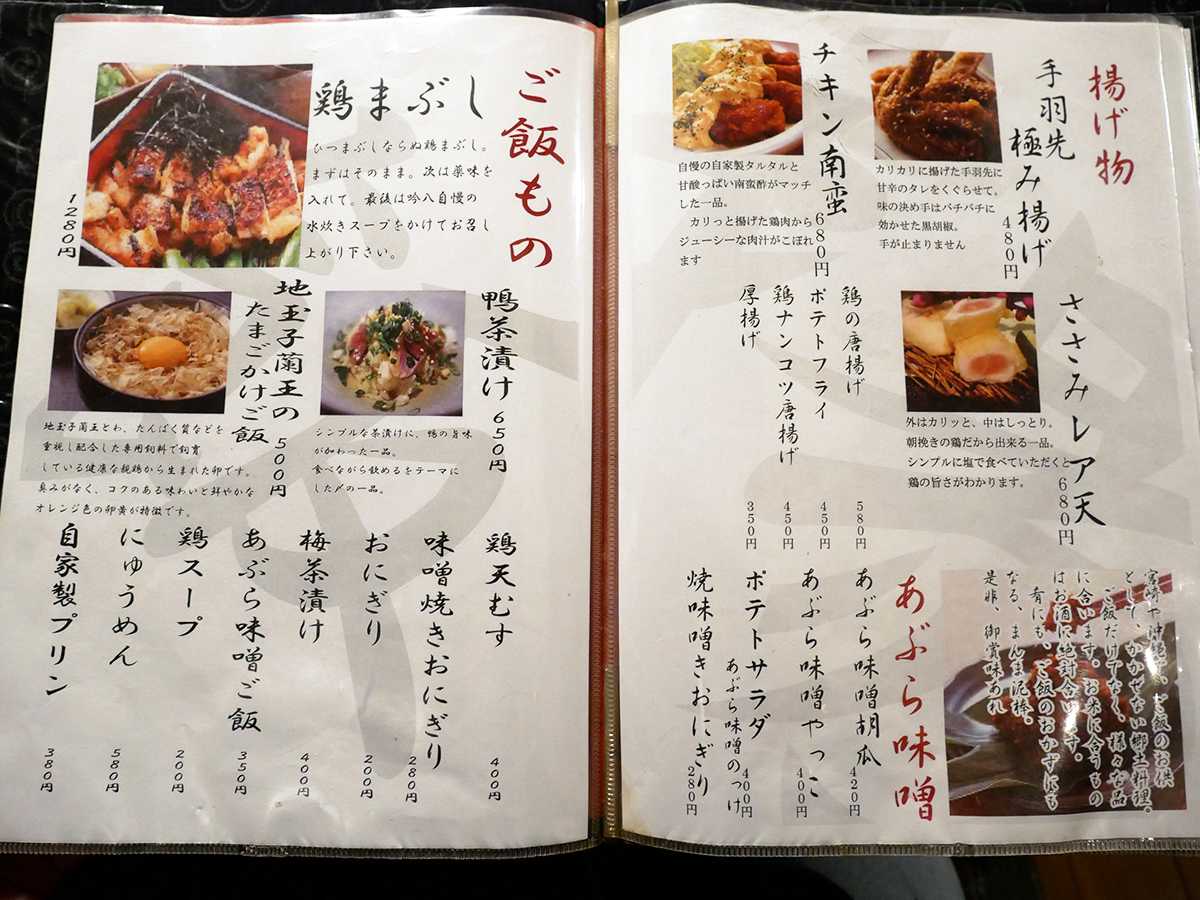 揚げ物
手羽先
極み揚げ
480円
カリカリに揚げた手羽先に
甘辛のタレをくぐらせて。
味の決め手はバチバチに
効かせた黒胡椒。
手が止まりません
チキン南蛮
680円
自慢の自家製タルタルと
甘酸っぱい南蛮酢がマッチ
した一品。
カリっと揚げた鶏肉から
ジューシーな肉汁がこぼれ
ます
ささみレア天
680円
外はカリッと、中はしっとり。
朝挽きの鶏だから出来る一品。
シンプルに塩で食べていただくと
鶏の旨さがわかります。
鶏の唐揚げ 580円
ポテトフライ 450円
鶏ナンコツ唐揚げ 450円
厚揚げ 350円
あぶら味噌
宮崎や沖縄で、ご飯のお供
として、かかせない郷土料理。
ご飯だけでなく、様々な品
に合います。お米に合うもの
はお酒に絶対合います。
肴にも、ご飯のおかずにも
なる、まんま泥棒。
是非、御賞味あれ
あぶら味噌胡瓜 420円
あぶら味噌やっこ 400円
ポテトサラダ
あぶら味噌のっけ 400円
焼味噌きおにぎり 280円
ご飯もの
鶏まぶし
1280円
ひつまぶしならぬ鶏まぶし。
まずはそのまま。次は薬味を
入れて。最後は吟八自慢の
水炊きスープをかけてお召し
上がり下さい。
鴨茶漬け
650円
シンプルな茶漬けに、鴨の旨味
が加わった一品。
食べながら飲めるをテーマに
した〆の一品。
地玉子蘭王の
たまごかけご飯
500円
地玉子蘭王とわ、たんぱく質などを
重視し配合した専用飼料で飼育
している健康な親鶏から生まれた卵です。
臭みがなく、コクのある味わいと鮮やかな
オレンジ色の卵黄が特徴です。
鶏天むす 400円
味噌焼きおにぎり 280円
おにぎり 200円
梅茶漬け 400円
あぶら味噌ご飯 350円
鶏スープ 200円
にゅうめん 580円
自家製プリン 380円